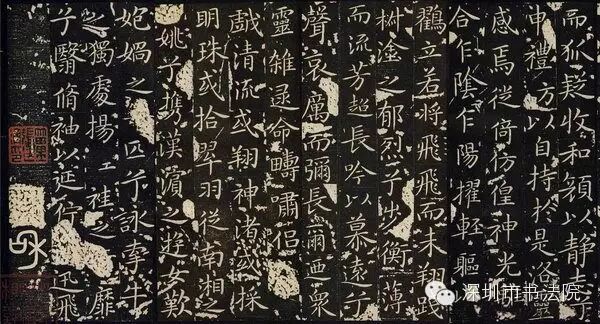 而狐疑收和顔以静志
申禮方以自持於是洛靈
感焉徙倚仿偟神光
合乍陰乍陽擢輕軀
鸛立若將飛飛而未翔踐
椒塗之郁烈兮步衡薄
而流芳超長吟以慕遠兮
聲哀厲而彌長爾迺衆
靈雜遝命疇嘯侣
戲清流或翔神渚或採
明珠或拾翠羽從南湘之
姚兮携漢濱之遊女歎
妃媧之匹兮詠牽牛
之獨處揚袿之靡
兮翳脩袖以延佇迅飛
深圳市书法院